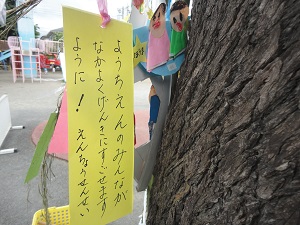 ようちえんのみんなが
なかよくげんきにすごせます
ように！　えんちょうせんせい